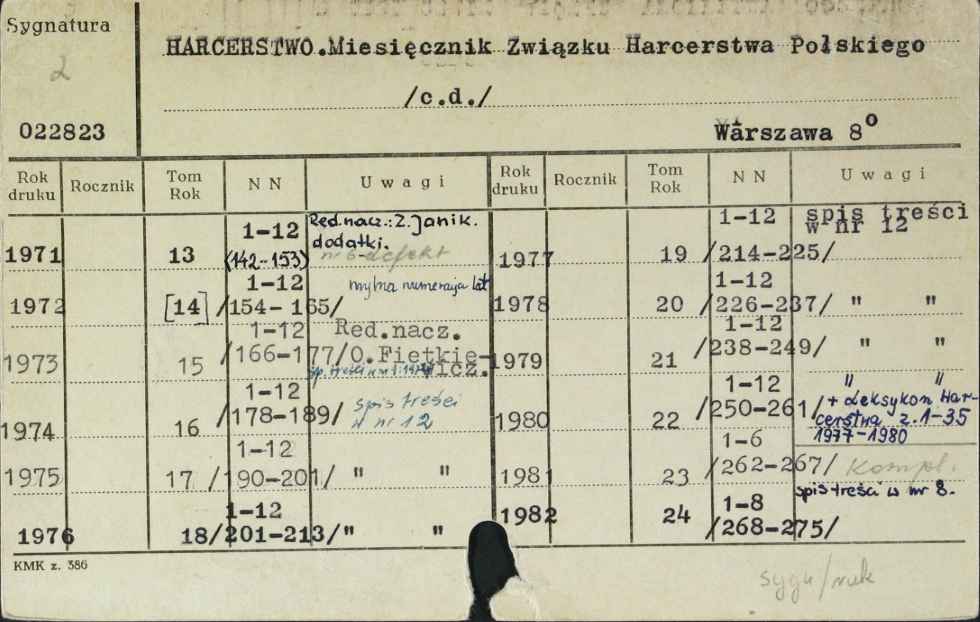 Sygnatura
2
022823
HARCERSTWO.Miesięcznik Związku Harcerstwa Polskiego
/c.d./
Warszawa 8°
Rok druku Rocznik Tom Rok NN Uwagi Rok druku Rocznik Tom Rok NN Uwagi
1971 13 1-12 (142-153) Red.nacz.: Z. Janik. dodatki. nr 6-defekt
1972 [14] 1-12 /154-165/ mylna numeracja lat
1973 15 1-12 /166-177/ Red.nacz. O.Fietkiewicz.
1974 16 1-12 /178-189/ spis treści w nr 12
1975 17 1-12 /190-201/ " "
1976 18 1-12 /201-213/ " "
1977 19 1-12 /214-225/ spis treści w nr 12
1978 20 1-12 /226-237/ " "
1979 21 1-12 /238-249/ " "
1980 22 1-12 /250-261/ " " + Leksykon Harcerstwa z. 1-35 1977-1980
1981 23 1-6 /262-267/ Kompl.
1982 24 1-8 /268-275/ spis treści w nr 8.
KMK z. 386